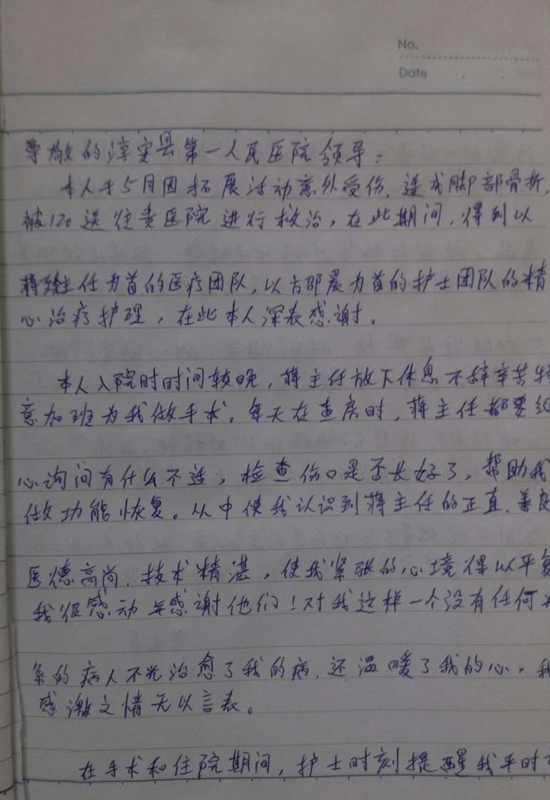 No.
Date
尊敬的淳安县第一人民医院领导：
本人于5月因拓展活动意外受伤，造成脚部骨折，
被120送往贵医院进行救治，在此期间，得到以
蒋主任为首的医疗团队，以方邵晨为首的护士团队的精
心治疗护理，在此本人深表感谢。
本人入院时时间较晚，蒋主任放下休息不辞辛苦特
意加班为我做手术。每天在查房时，蒋主任都要细
心询问有什么不适，检查伤口是否长好了，帮助我
做功能恢复。从中使我认识到蒋主任的正直、善良
医德高尚，技术精湛，使我紧张的心境得以平复
我很感动并感谢他们！对我这样一个没有任何
系的病人不光治愈了我的病，还温暖了我的心，我
感激之情无以言表。
在手术和住院期间，护士时刻提醒我平时